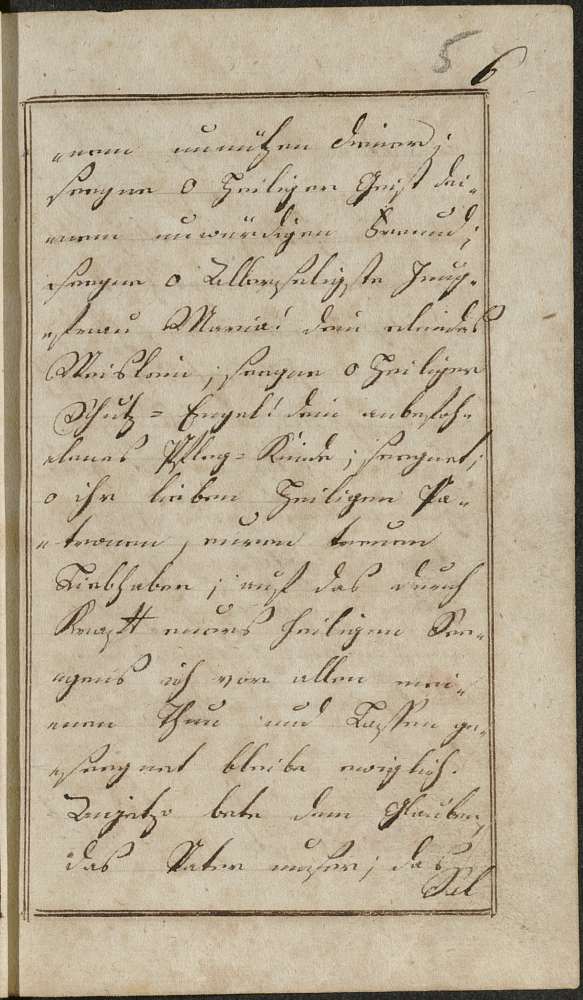 5 6
nem unnützen Diener;
seegne O Heiliger Geist dei-
nem unwürdigen Freund;
seegne o Allerseligste Jung-
frau Maria! dein elendes
Waislein; seegne o Heiliger
Schutz= Engel! dein anbefoh-
lenes Pfleg= Kinde; seegnet;
o ihr lieben Heiligen Pa-
tronen, euren treuen
Liebhaber; auf das durch
Krafft eures heiligen See-
gens ich vor allen mei-
nem Thun und Lassen ge-
seegnet bleibe ewiglich.
bete den Glauben,
das Vater unser; das
Sal